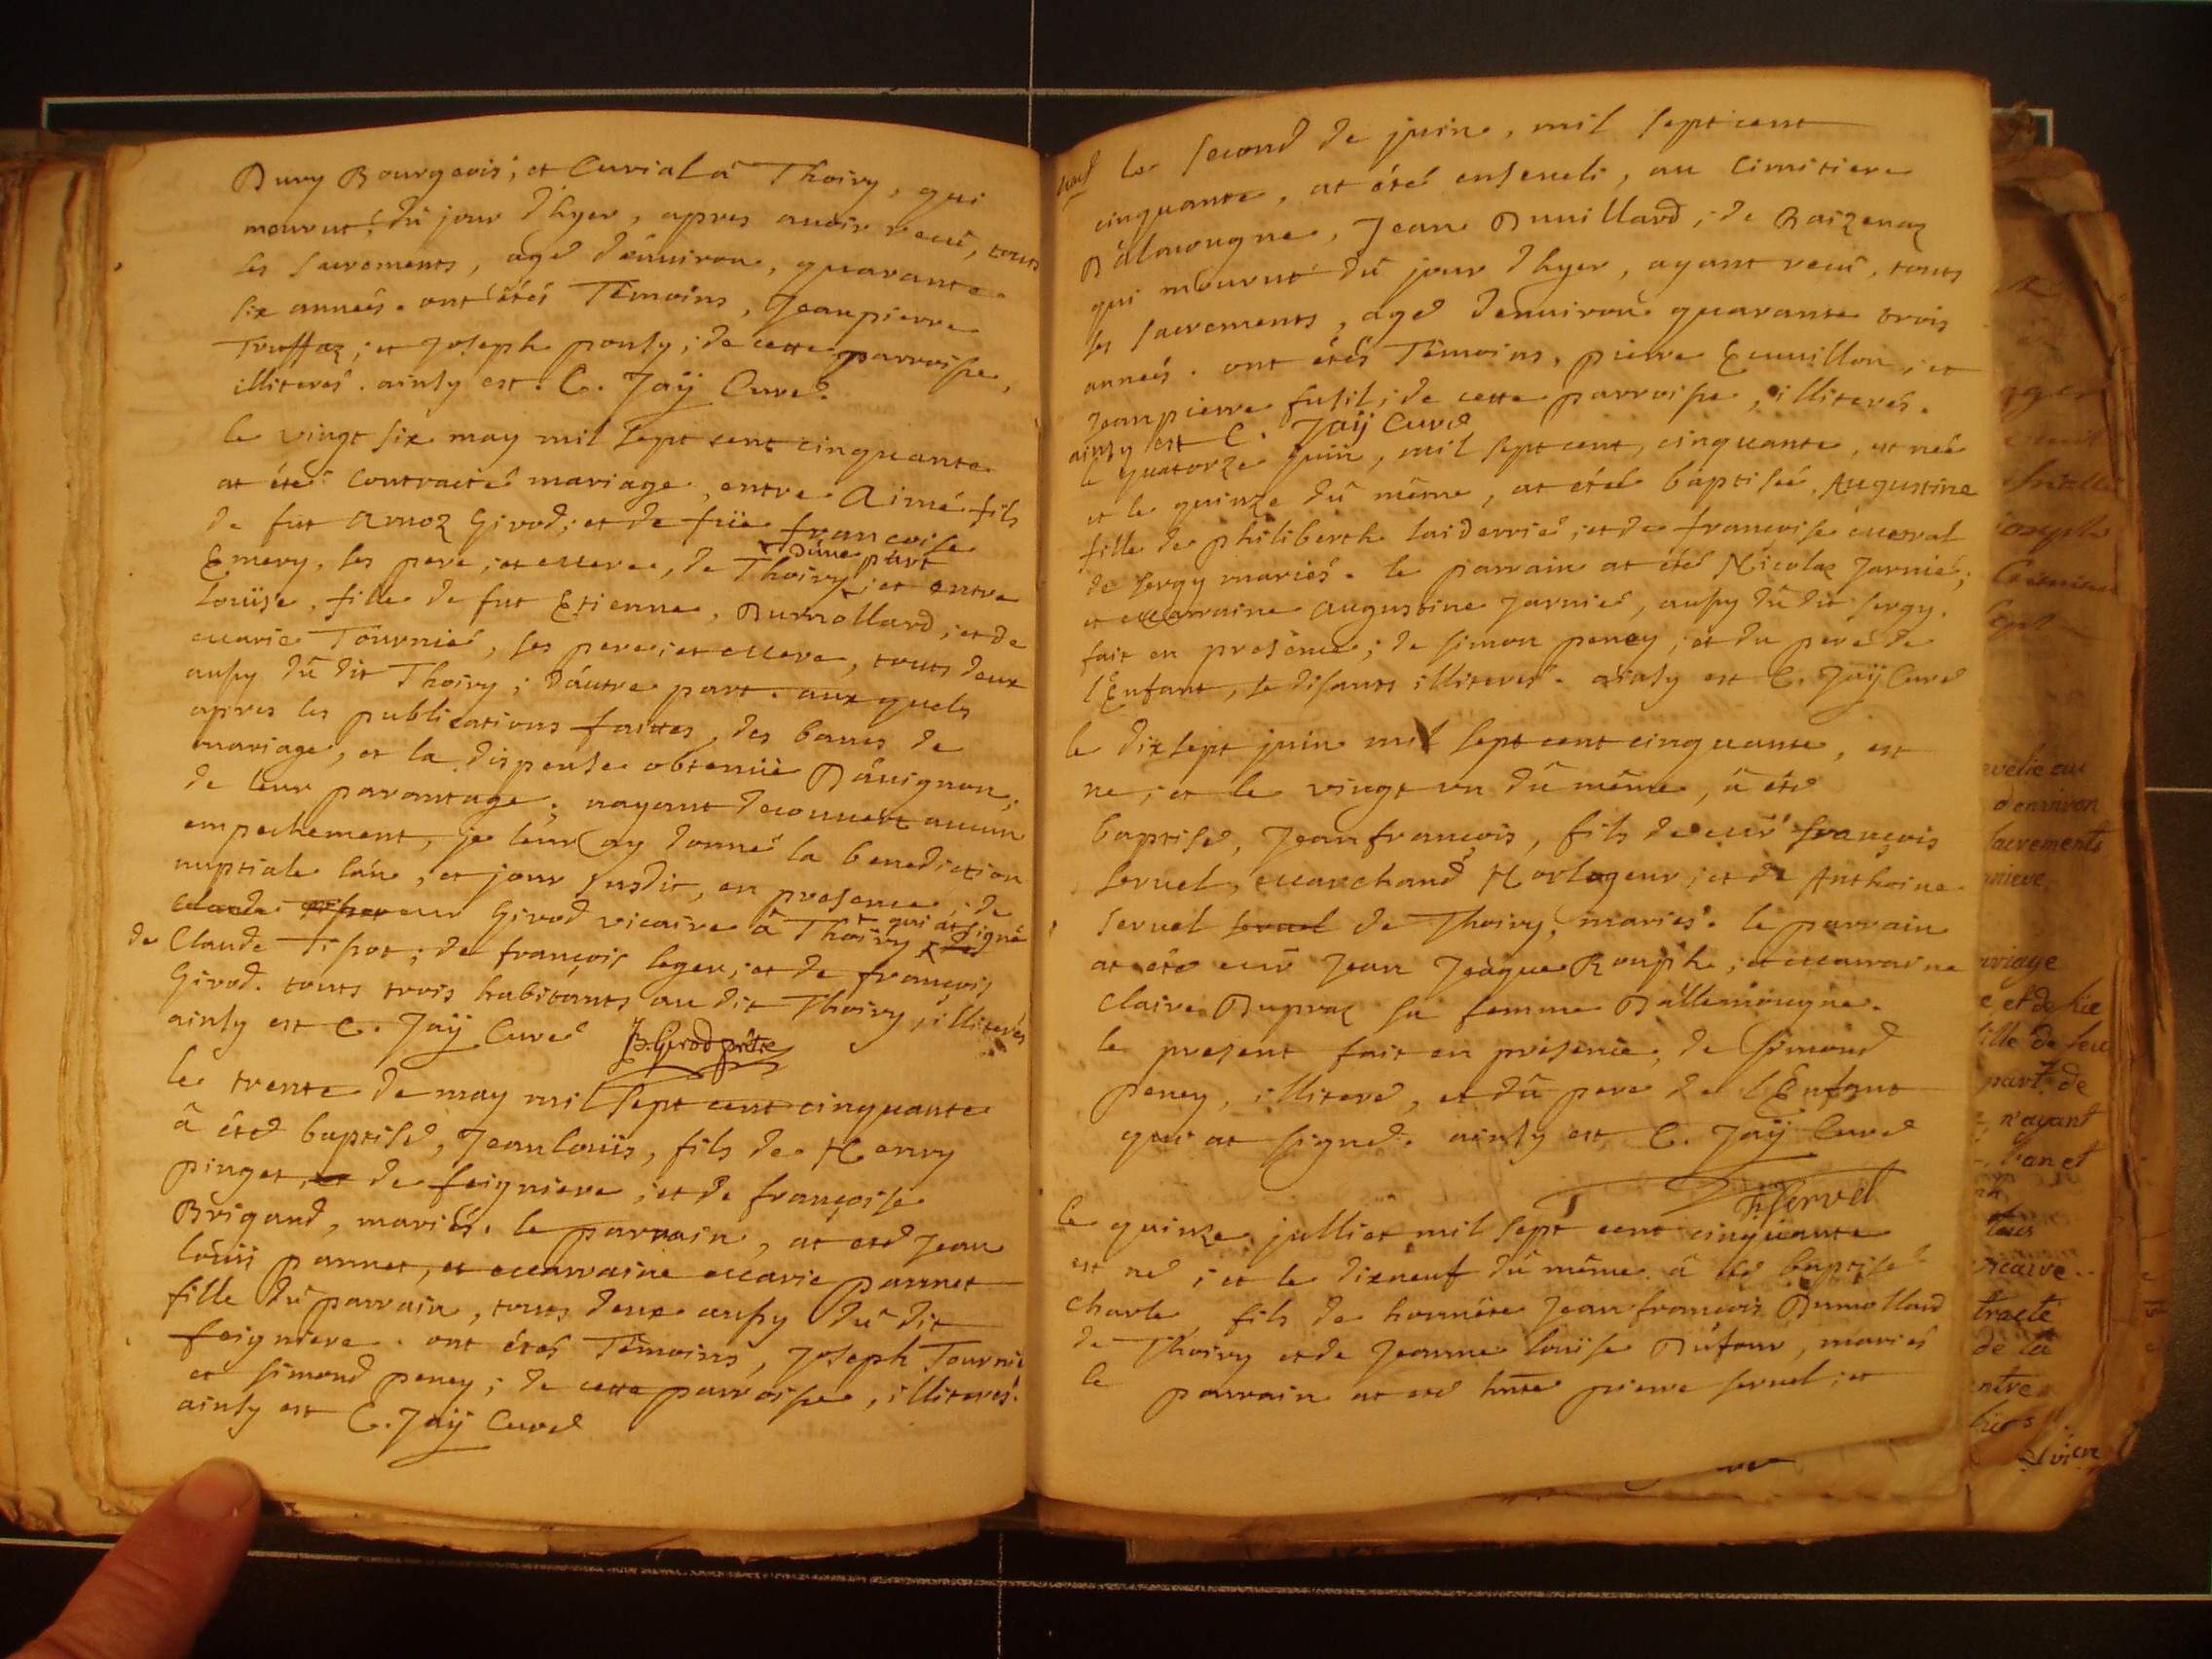 Dury Bourgeois; et Curial â Thoiry, qui
mourut; dû jour d'hyer, apres avoir recû, touts
les sacrements, aged d'environ, quarante
six années. ont étés Têmoins, Jeanpierre
Truffaz; et Joseph ponsy; de cette parroisse,
illiterés. ainsy est. C. Jaÿ Cured
le vingt six may mil sept cent cinquante
at été contracté mariage, entre Aimé fils
de fut Girod; et de füe francoise
Emery, ses pere; et mere, de Thoiry d'une part; et entre
Loüise, fille de fut Etienne, Dumollard; et de
marie Tournié, ses pere; et mere, touts deux
aussy dû dit Thoiry; d'autre part. aux quels
apres les publications faittes, des bancs de
mariage, et la dispense obtenüe D'avignon;
de leur parantage; nayant decouvert aucun
empechement, je leur ay donné la benediction
nuptiale lán, et jour susdit, en presence; de
Girod vicaire â Thoiry qui at signé
de Claude Tispot; de françois leger; et de françois
Girod. touts trois habitants au dit Thoiry, illiterés
ainsy est C. Jaÿ Cured B. Girod prêtre
le trente de may mil sept cent cinquante
â éted baptised, Jeanloüis, fils de Henry
pinget, de feigniere; et de françoise
Brigand, mariés. le parrain, at eted Jean
loüis pannet, et marraine marie pannet
fille dû parrain, touts deux aussy dû dit
feigniere. ont étés Têmoins, Joseph Tournié
et simond peney; de cette parroisse, illiterés.
ainsy est C. Jaÿ Cured
le second de juin, mil sept cent
cinquante, at été enseveli, au cimitiere
Dálemougne, Jean Duvillard; de Baizenaz
qui mourut dû jour d'hyer, ayant recû, touts
les sacrements, aged denviron quarante trois
années. ont étés Têmoins, pierre Ecuvillon; et
Jeanpierre fusil; de cette parroisse, illiterés.
ainsy est C. Jaÿ Cured
le quatorze juin, mil sept cent, cinquante, est née
et le quinze dû même, at éted baptiseé, Augustine
fille de philiberth laiderrier; et de françoise
de sergy mariés. le parrain at été Nicolaz Jarnié;
et marraine Augustine Jarnier, aussy dû dit sergy.
fait en presence; de simon peney; et du peré de
l'Enfant, se disants illiterés. ainsy est C. Jaÿ Cured
le dixsept juin mil sept cent cinquante, est
ne; et le vingt un dû même, â été
baptised, Jeanfrançois, fils de françois
servel, marchand Horlogeur; et de Anthoine
servel servel de Thoiry; mariés. le parrain
at été Jean Jâque Rouph; et marraine
claire Dupraz sa femme Dállemougne.
le present fait en presence; de simond
peney, illitered, et dû pere de l'Enfant
qui at signed. ainsy est C. Jaÿ Cured
F. Servel
le quinze julliet mil sept cent cinquante
est ned; et le dixneuf dû même â été baptised
charle, fils de honnête Jean françois Dumollard
de Thoiry et de Jeanne loüise Dufour, mariés
le parrain at eted hnte pierre servel; et